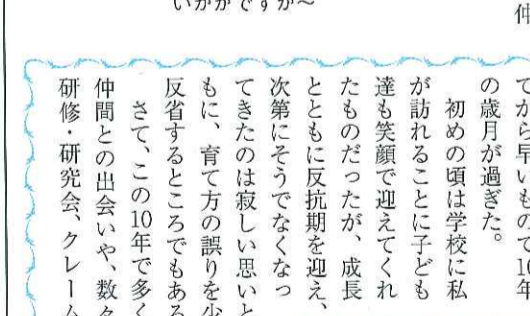 仲
いかがですか〜
てから早いもので10年
の歳月が過ぎた。
初めの頃は学校に私
が訪れることに子ども
達も笑顔で迎えてくれ
たものだったが、成長
とともに反抗期を迎え、
次第にそうでなくなっ
てきたのは寂しい思いと
もに、育て方の誤りを少
反省するところでもある
さて、この10年で多く
仲間との出会いや、数々
研修・研究会、クレーム